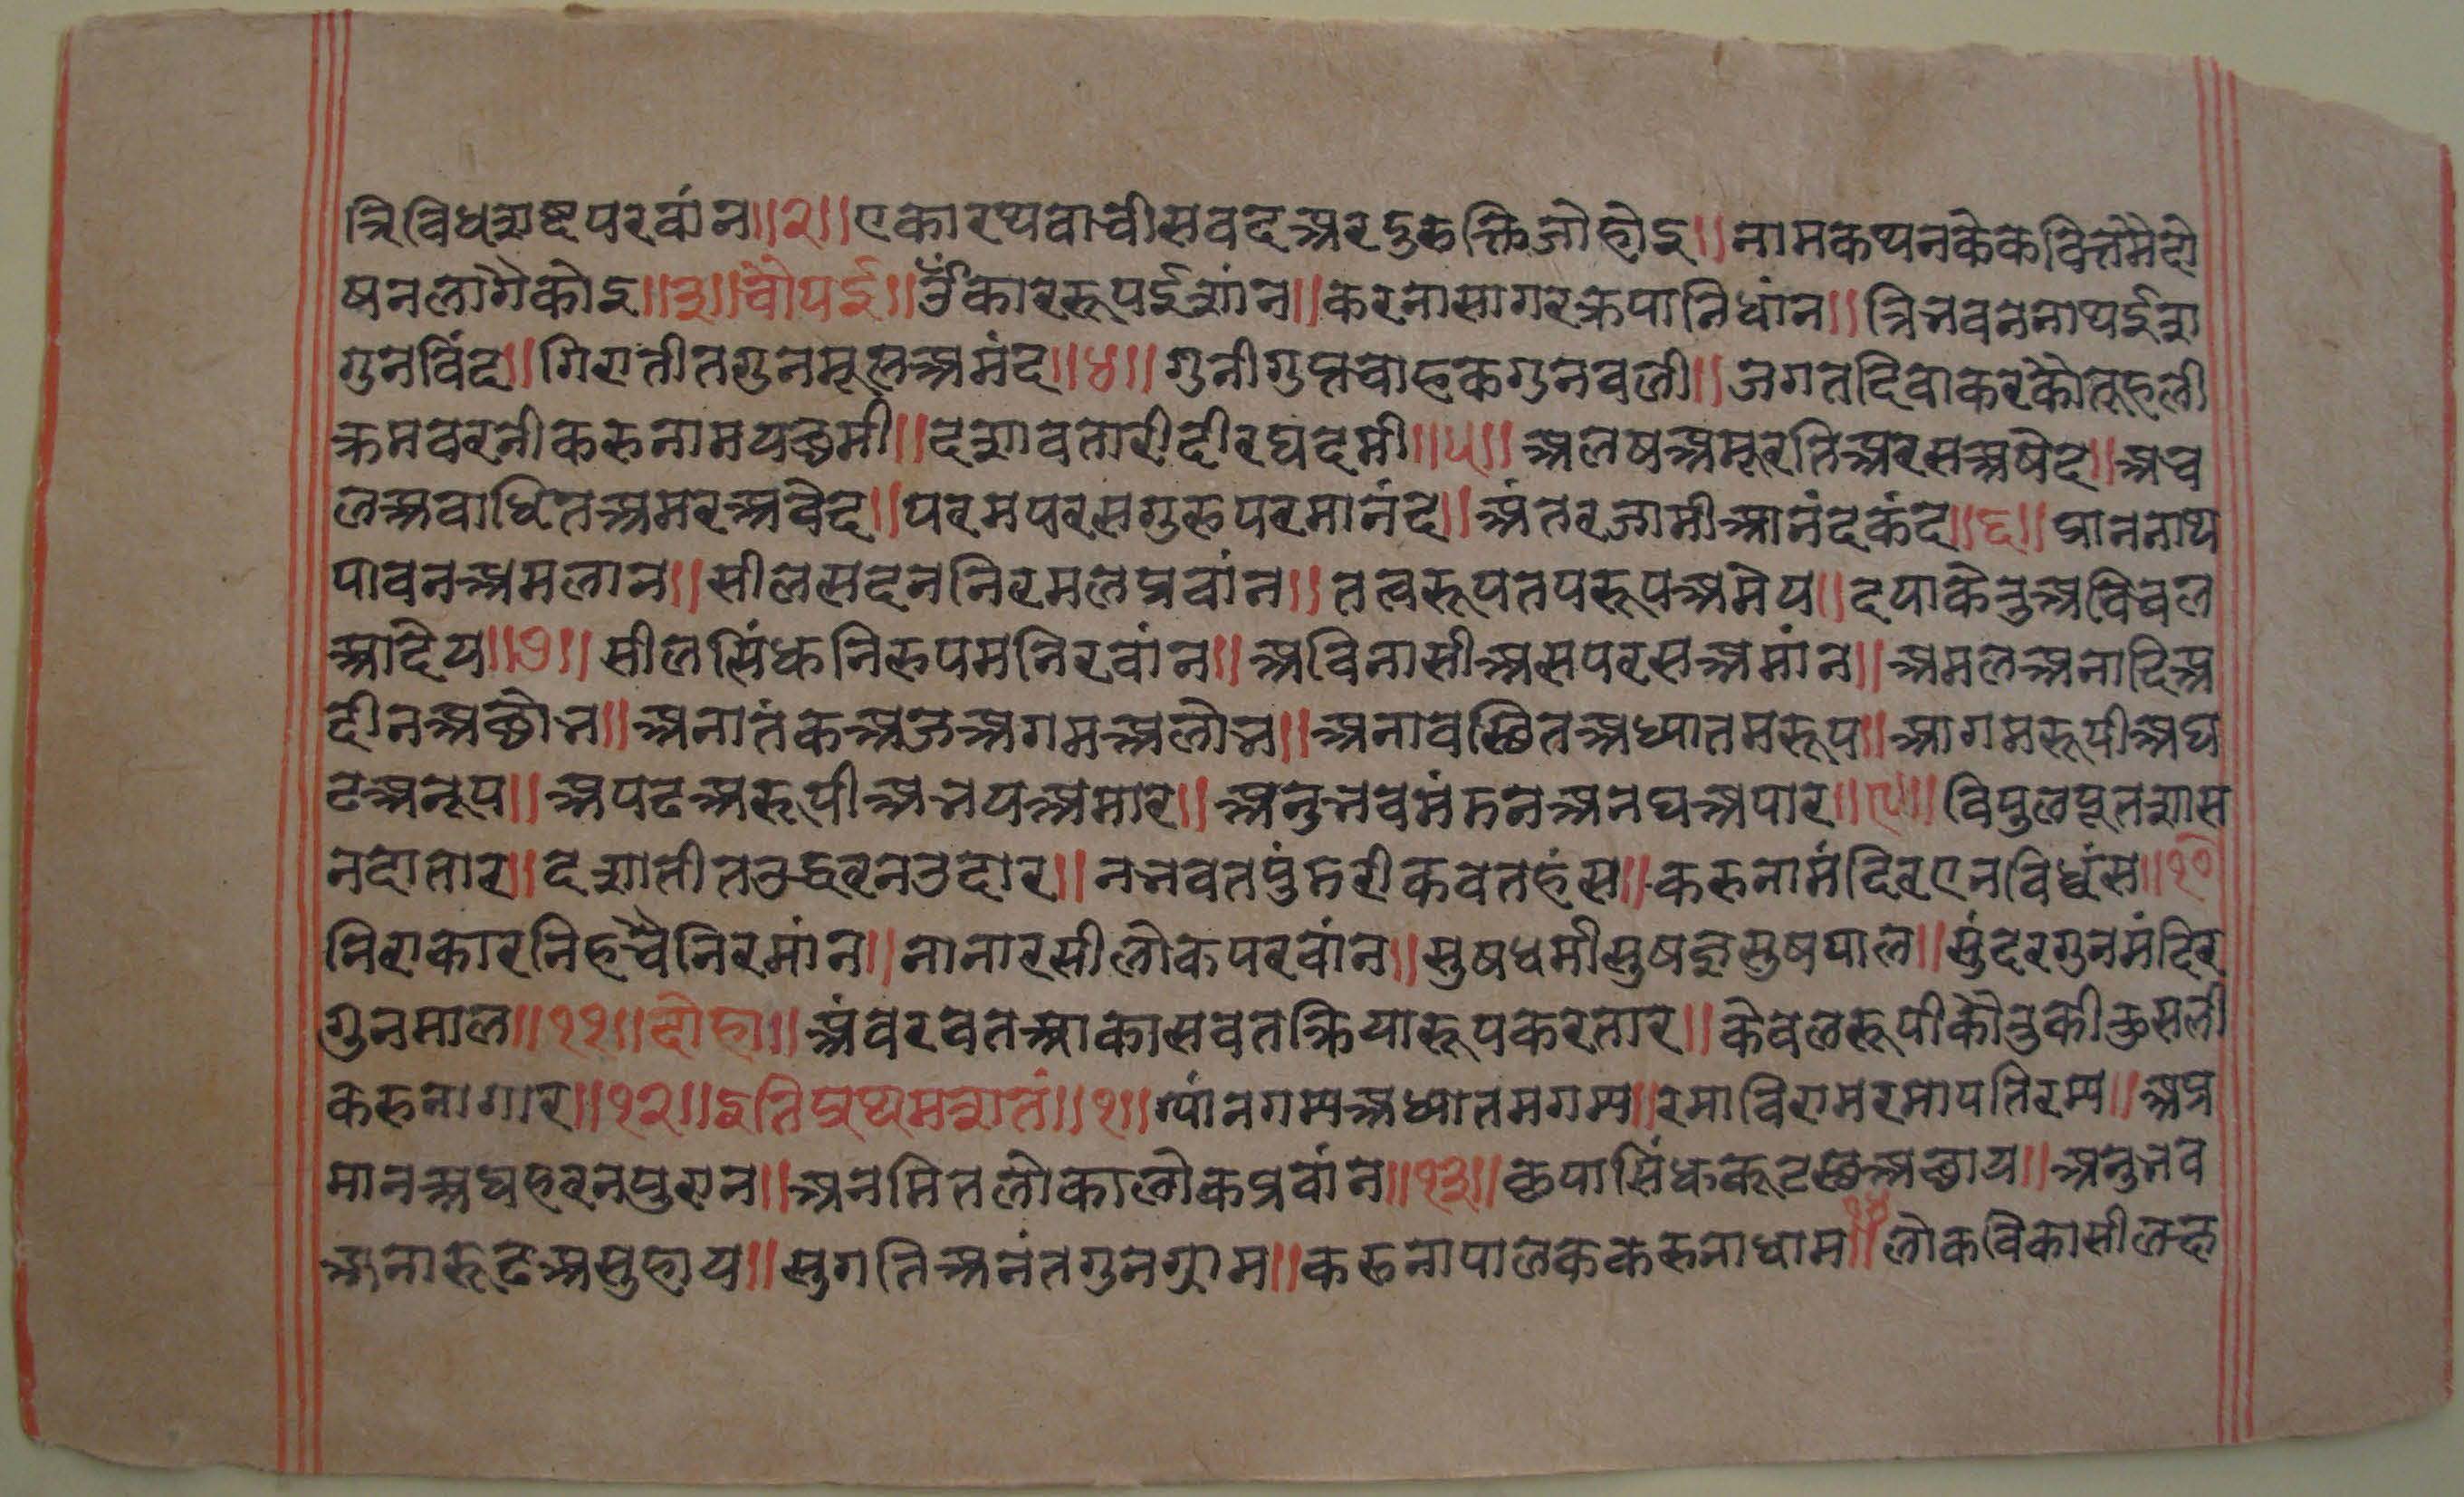 त्रिविधशष्टपरवांन॥२॥एकारथवाचीसवदअरदुरुक्तिजोहोइ॥नामकथनकेकवित्तमैदो
षनलागैकोइ॥३॥चौपई॥उँकाररूपईशांन॥करनासागरक्रपानिधांन॥त्रिभवननाथईश
गुनविंद॥गिरातीतगुनमूलअमंद॥४॥गुनीगुप्तवाहकगुनवली॥जगतदिवाकरकौतूहली
क्रमवरनीकरुनामयछमी॥दशावतारीदीरघदमी॥५॥अलषअमूरतिअरसअषेद॥अच
लअवाधितअमरअवेद॥परमपरमगुरुपरमानंद॥अंतरजामीआनंदकंद॥६॥प्राननाथ
पावनअमलान॥सीलसदननिरमलप्रवांन॥तत्वरूपतपरूपअमेय॥दयाकेतुअविचल
आदेय॥७॥सीलसिंधनिरुपमनिरवांन॥अविनासीअसपरसअमांन॥अमलअनादिअ
दीनअछोभ॥अनातंकअजअगमअलोभ॥अनावस्थितअध्यातमरूप॥आगमरूपीअघ
टअनूप॥अपटअरूपीअभयअमार॥अनुभवमंडनअनघअपार॥९॥विपुलपूतशास
नदातार॥दशातीतउद्धरनउदार॥नभवतपुंडरीकवतहंस॥करुनामंदिरएनविध्वंस॥१०
निराकारनिहचैनिरमांन॥नानारसीलोकपरवांन॥सुषधर्मीसुषज्ञसुषपाल॥सुंदरगुनमंदिर
गुनमाल॥११॥दोहा॥अंवरवतआकासवतक्रियारूपकरतार॥केवलरूपीकौतुकीकुसली
करुनागार॥१२॥इतिप्रथमशतं॥१॥ग्यांनगम्यअध्यातमगम्य॥रमाविरामरमापतिरम्य॥अप्र
मानअघहरनपुरान॥अनमितलोकालोकप्रवांन॥१३॥क्रपासिंधकूटछअछाय॥अनुभव
अनारूढअसुहाय॥सुगतिअनंतगुनग्राम॥करुनापालककरुनाधाम॥१४॥लोकविकासीलछ